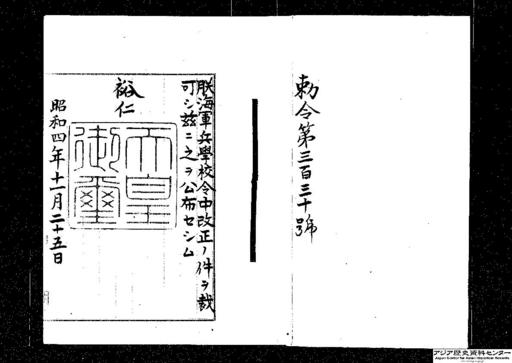 勅令第三百三十號
朕海軍兵學校令中改正ノ件ヲ裁
可シ茲ニ之ヲ公布セシム
裕仁
天皇
御璽
昭和四年十一月二十五日
アジア歴史資料センター
Japan Center for Asian Historical Records